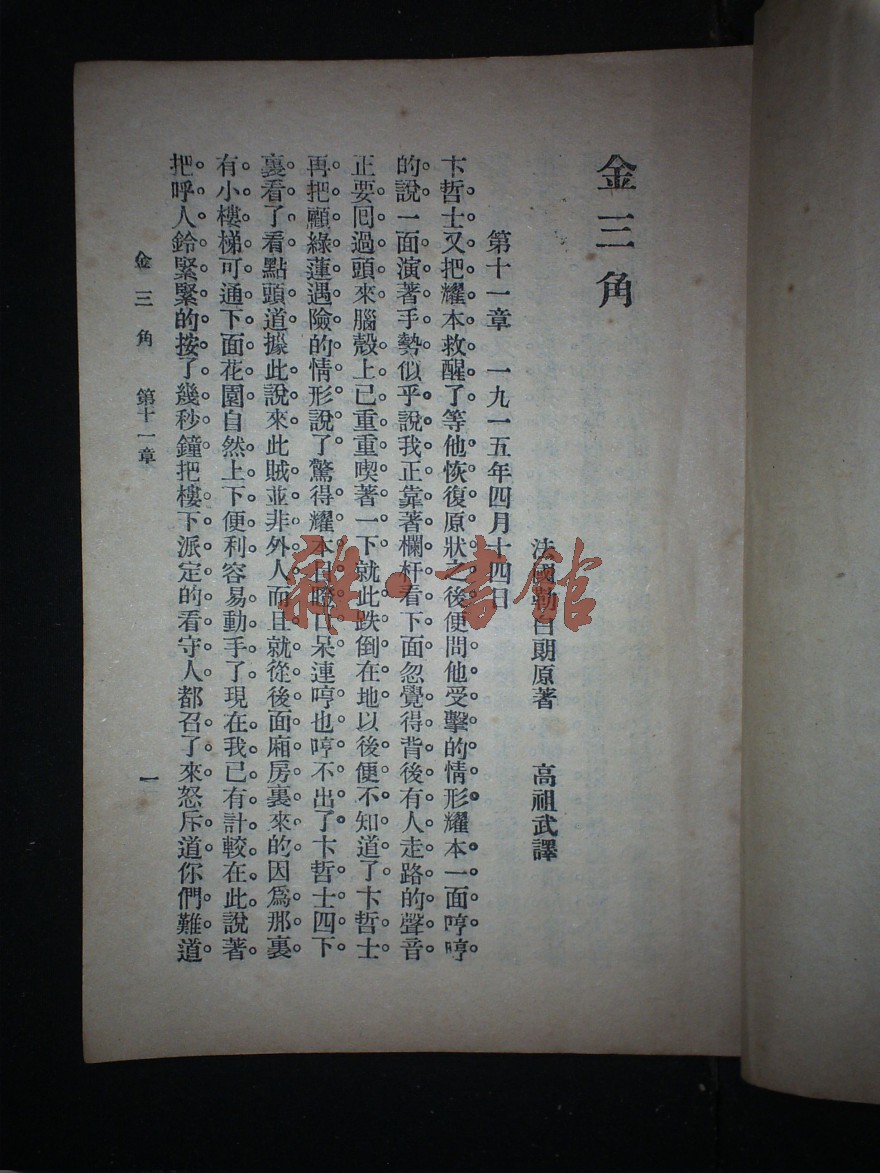 金三角
法國勒白朗原著 高祖武譯
第十一章 一九一五年四月十四日
卞哲士又把耀本救醒了等他恢復原狀之後便問他受擊的情形耀本一面哼哼
的說一面演著手勢似乎說我正靠著欄杆看下面忽覺得背後有人走路的聲音
正要回過頭來腦殼上已重重喫著一下就此跌倒在地以後便不知道了卞哲士
再把顧綠蓮遇險的情形說了驚得耀本目瞪口呆連哼也哼不出了卞哲士四下
裏看了看點頭道據此說來此賊並非外人而且就從後面廂房裏來的因爲那裏
有小樓梯可通下面花園自然上下便利容易動手了現在我已有計較在此說著
把呼人鈴緊緊的按了幾秒鐘把樓下派定的看守人都召了來怒斥道你們難道
金三角 第十一章
一
雜·書館